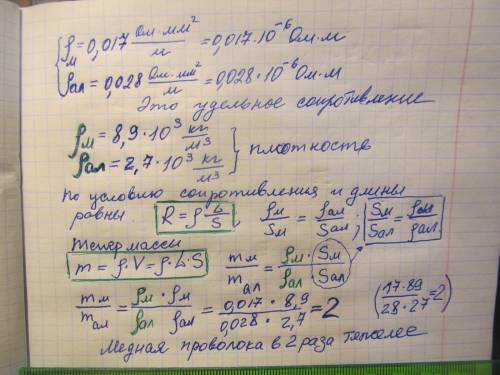 ρм = 0,017 Ом·мм²/м = 0,017·10⁻⁶ Ом·м
ρал = 0,028 Ом·мм²/м = 0,028·10⁻⁶ Ом·м
Это удельное сопротивление
ρм = 8,9·10³ кг/м³
ρал = 2,7·10³ кг/м³ } плотность
по условию сопротивления и длины
равны. R = ρ L/S , ρм/Sм = ρал/Sал ; Sм/Sал = ρм/ρал
Теперь массы
m = ρ·V = ρ·L·S mм/mал = ρм·Sм/ρал·Sал
mм/mал = ρм·ρм/ρал ρал = 0,017·8,9/0,028·2,7 = 2 (17·89/28·27 = 2)
Медная проволока в 2 раза тяжелее